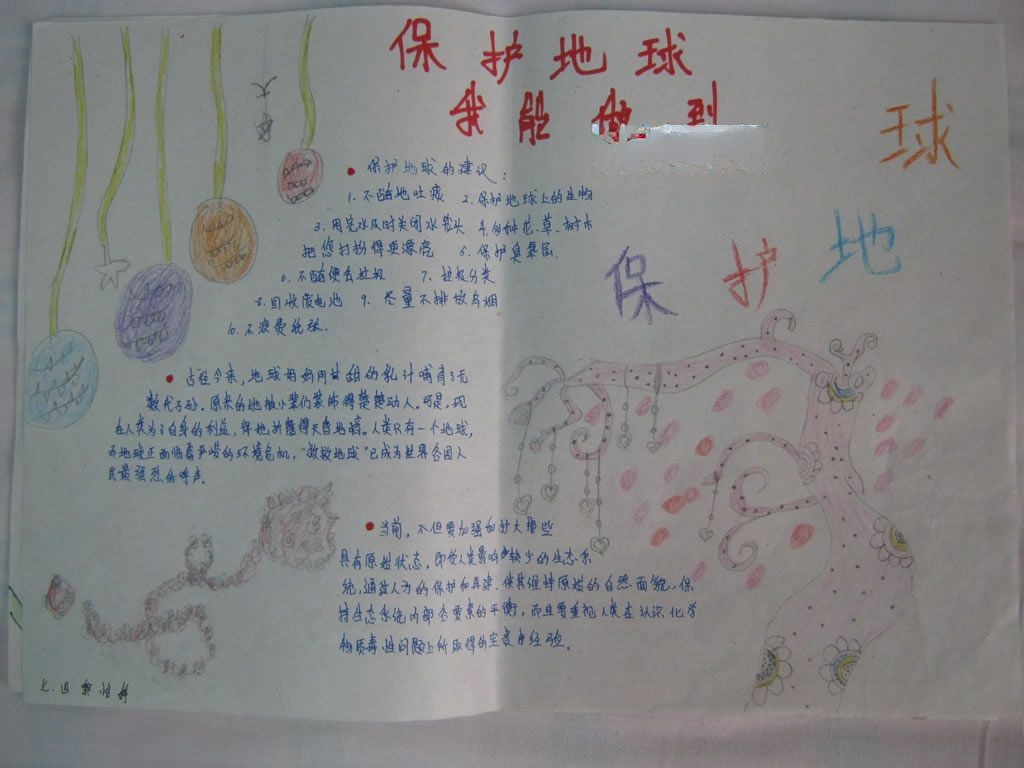 保护地球
我能做到
球
地
护
保
保护地球的建议:
1. 不随地吐痰 2. 保护地球上的生物
3. 用完水及时关闭水龙头 4. 多种花、草、树木
把您打扮得更漂亮 5. 保护臭氧层.
6. 不随便丢垃圾 7. 垃圾分类
8. 回收废电池 9. 尽量不排放乌烟
10. 不浪费纸张.
古往今来, 地球妈妈用甘甜的乳汁哺育了无
数代子孙. 原来的她被小辈们装饰得楚楚动人. 可是, 现
在人类为了自身的利益, 将她折磨得天昏地暗. 人类只有一个地球,
而地球正面临着严峻的环境危机, "救救地球"已成为世界各国人
民最强烈的呼声.
当前, 不但要加强和扩大那些
具有原始状态, 即受人类影响较少的生态系
统, 通过人为的保护和再建, 使其维持原始的自然面貌, 保
持生态系统内部各要素的平衡, 而且要重视人类在认识化学
物质毒性问题上所取得的宝贵经验.